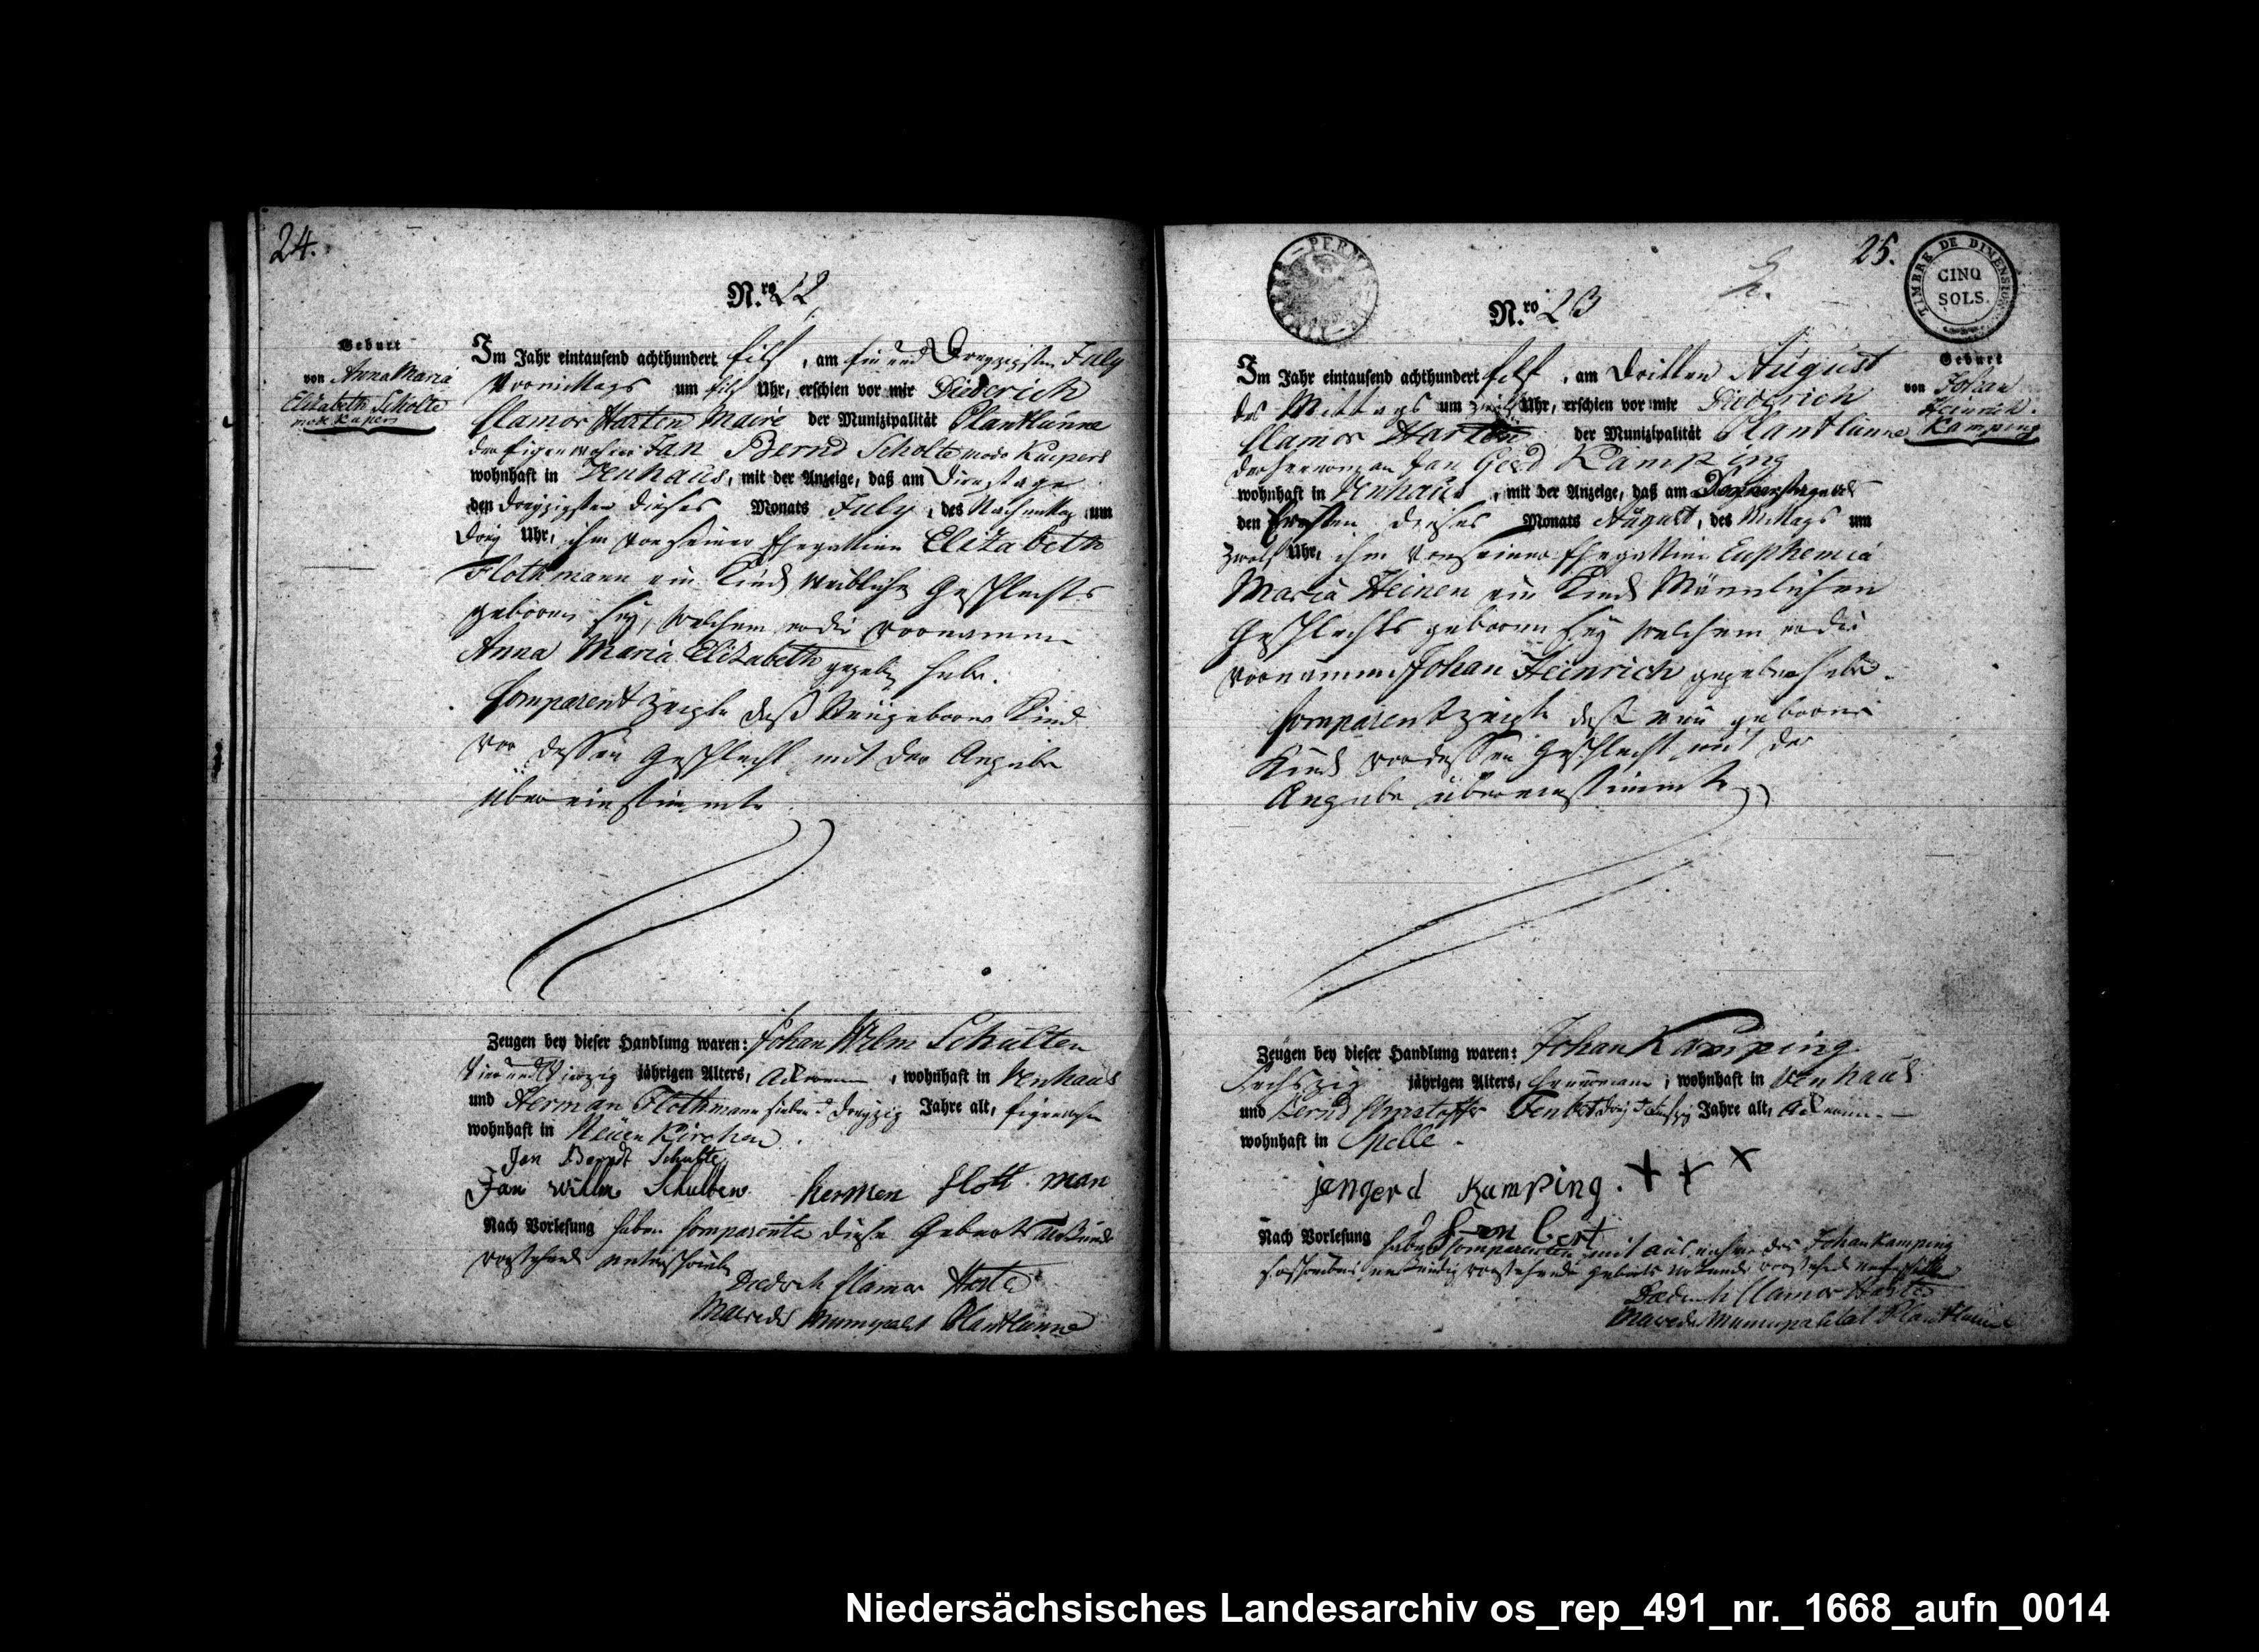 24.
N.ro 22
Geburt
von Anna Maria
Elizabeth Scholte
modo Kupers
Im Jahr eintausend achthundert Eilf, am Ein und Dreyzigsten July
Vormittags um Eilf Uhr, erschien vor mir Diederich
Clamor Harten Maire der Munizipalität Plantlünne
der Eigenwohner Jan Bernd Scholte modo Kuepers
wohnhaft in Venhaus, mit der Anzeige, daß am Dienstage
den Dreyzigsten dieses Monats July, des Nachmittag um
Drey Uhr, ihm von seiner Ehegattinn Elizabeth
Flothmann ein Kind weibliche Geschlechts
gebooren sey, welchem er die Voornamen
Anna Maria Elizabeth gegeben habe.
Comparent zeigte daß Neugeborne Kind
vor dessen Geschlecht mit der Angabe
übereinstimmte
Zeugen bey dieser Handlung waren: Johan Wilm Schulten
Vier und Vierzig jährigen Alters, Ackersmann, wohnhaft in Venhaus
und Herman Flothmann sieben u Dreyzig Jahre alt, Eigenwohner
wohnhaft in Neuenkirchen.
Jan Berndt Schulte
Jan Willm Schulten hermen flott man
Nach Vorlesung haben Comparenten diese Geburts Urkunde
vorstehend unterschrieben
Diedrich Clamor Harte
Maire der Municipalitet Plantlünne
25.
TIMBRE DE DIMENSION
CINQ
SOLS.
N.ro 23
Geburt
von Johan
Heinrich
Kamping
Im Jahr eintausend achthundert Eilf, am Dritten August
des Mittags um zwölf Uhr, erschien vor mir Diederich
Clamor Harten der Munizipalität Plantlünne
der Heuermann Jan Gerd Kamping
wohnhaft in Venhaus, mit der Anzeige, daß am Donnerstage
den Ersten dieses Monats August, des Mittags um
zwölf Uhr, ihm von seiner Ehegattinn Euphemia
Maria Heinen ein Kind Männlichen
Geschlechts gebooren sey welchem er die
Voornamen Johan Heinrich gegeben habe.
Comparent zeigte daß neu geboorne
Kind vor dessen Geschlecht mit der
Angabe übereinstimmte
Zeugen bey dieser Handlung waren: Johan Kamping
Sechszig jährigen Alters, Heuermann, wohnhaft in Venhaus
und Bernd Christoffer Tenbert Drey Jahre alt, Ackersmann
wohnhaft in Spelle.
jangerd Kamping. + + x
Nach Vorlesung haben Comparenten mit ausnahme des Johan Kamping
vorstehende Geburts Urkunde vorstehend unterschrieben
Diedrich Clamor Harten
Maire der Municipalitat Plantlünne
Niedersächsisches Landesarchiv os_rep_491_nr._1668_aufn_0014